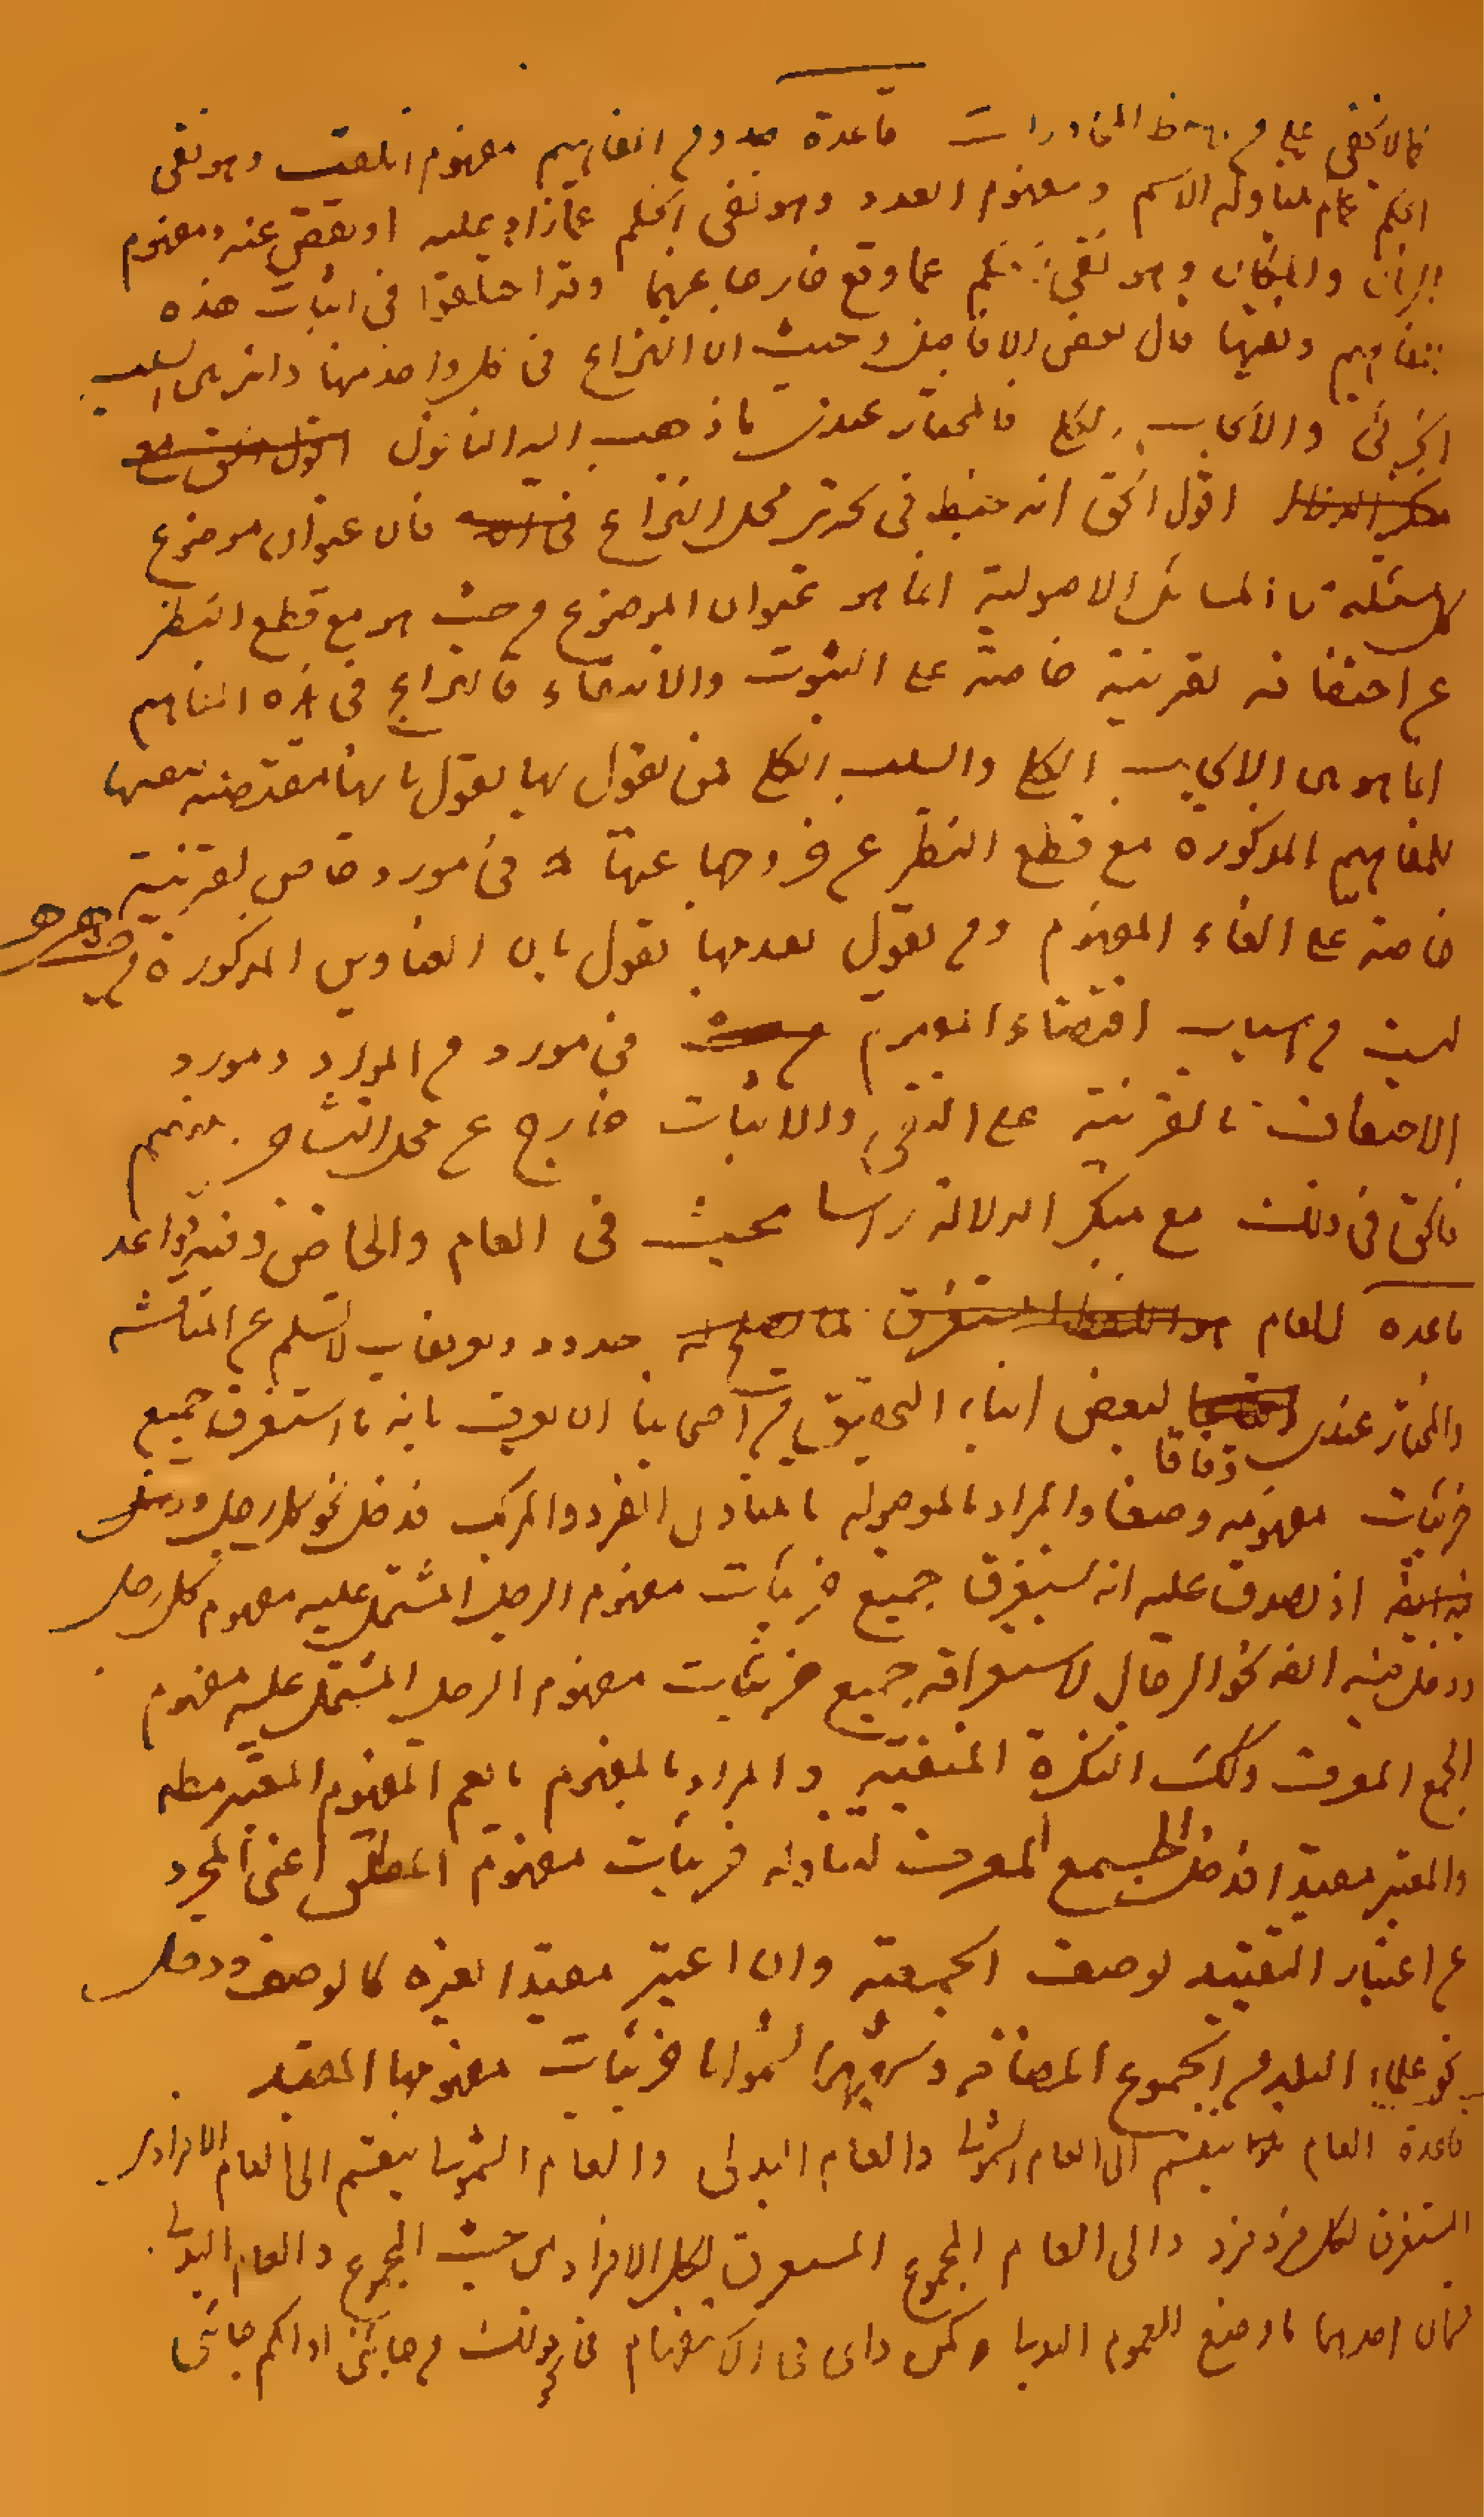 كما لا يخفى على من لاحظ المحاورات قاعدة عد من المفاهيم مفهوم اللقب وهو نفى
الحكم عما لم يتناوله الاسم ومفهوم العدد وهو نفى الحكم عما زاد عليه او نقص عنه ومفهوم
الزمان والمكان وهو نفى الحكم عما وقع خارجا عنهما وقد اختلفوا فى اثبات هذه
المفاهيم ونفيها قال بعض الافاضل وحيث ان النزاع فى كل واحد منها دائر بين السلب
الجزئى والايجاب الكلى فالمختار عندى ما ذهب اليه النافون اقول الحق مع
منكر الدلالة اقول الحق انه خبط فى تحرير محل النزاع فان عنوان موضوع
كل مسئلة من المسائل الاصولية انما هو عنوان الموضوع من حيث هو مع قطع النظر
عن احتفافه بقرينة خاصة على الثبوت والانتفاء فالنزاع فى هذه المفاهيم
انما هو بين الايجاب الكلى والسلب الكلى فمن يقول بها يقول بانها مقتضية بنفسها
للمفاهيم المذكورة مع قطع النظر عن خروجها عنها فى مورد خاص لقرينة
خاصة على الغاء المفهوم ومن يقول بعدمها يقول بان العناوين المذكورة من حيث هى هى
ليست من اسباب اقتضاء المفهوم فى مورد من الموارد ومورد
الاحتفاف بالقرينة على النفى والاثبات خارج عن محل التشاجر بينهم
فالحق فى ذلك مع منكر الدلالة راسا مبحث فى العام والخاص وفيه قواعد
قاعدة للعام هو اللفظ المستغرق لما يصلح له حدود وتعريفات لا تسلم عن المناقشة
والمختار عندى وفاقا لبعض ابناء التحقيق من اصحابنا ان يعرف بانه ما استغرق جميع
جزئيات مفهومه وضعا والمراد بالموصولة ما يتناول المفرد والمركب فدخل نحو كل رجل ودخل
فيه ايضا اذ يصدق عليه انه يستغرق جميع جزئيات مفهوم الرجل المشتمل عليه مفهوم كل رجل
ودخل فيه ايضا نحو الرجال لاستغراقه جميع جزئيات مفهوم الرجل المشتمل عليه مفهوم
الجمع المعرف وكذلك النكرة المنفية والمراد بالمفهوم ما يعم المفهوم المعتبر مطلقا
والمعتبر مقيدا فدخل الجمع المعرف لتناوله جزئيات مفهوم المطلق اعنى المجرد
عن اعتبار التقييد بوصف الجمعية وان اعتبر مقيدا بغيره كالوصف ودخل
نحو علماء البلد من الجموع المضافة وشبهها لشمولها جزئيات مفهومها المقيد
قاعدة العام ينقسم الى العام الشمولى والعام البدلى والعام الشمولى ينقسم الى العام الافرادى
المستغرق لكل فرد فرد والى العام المجموعى المستغرق لكل الافراد من حيث المجموع والعام البدلى
قسمان احدهما ما وضع للعموم البدلى كمن واى فى الاستفهام فى قولك من جائنى او ايكم جائنى